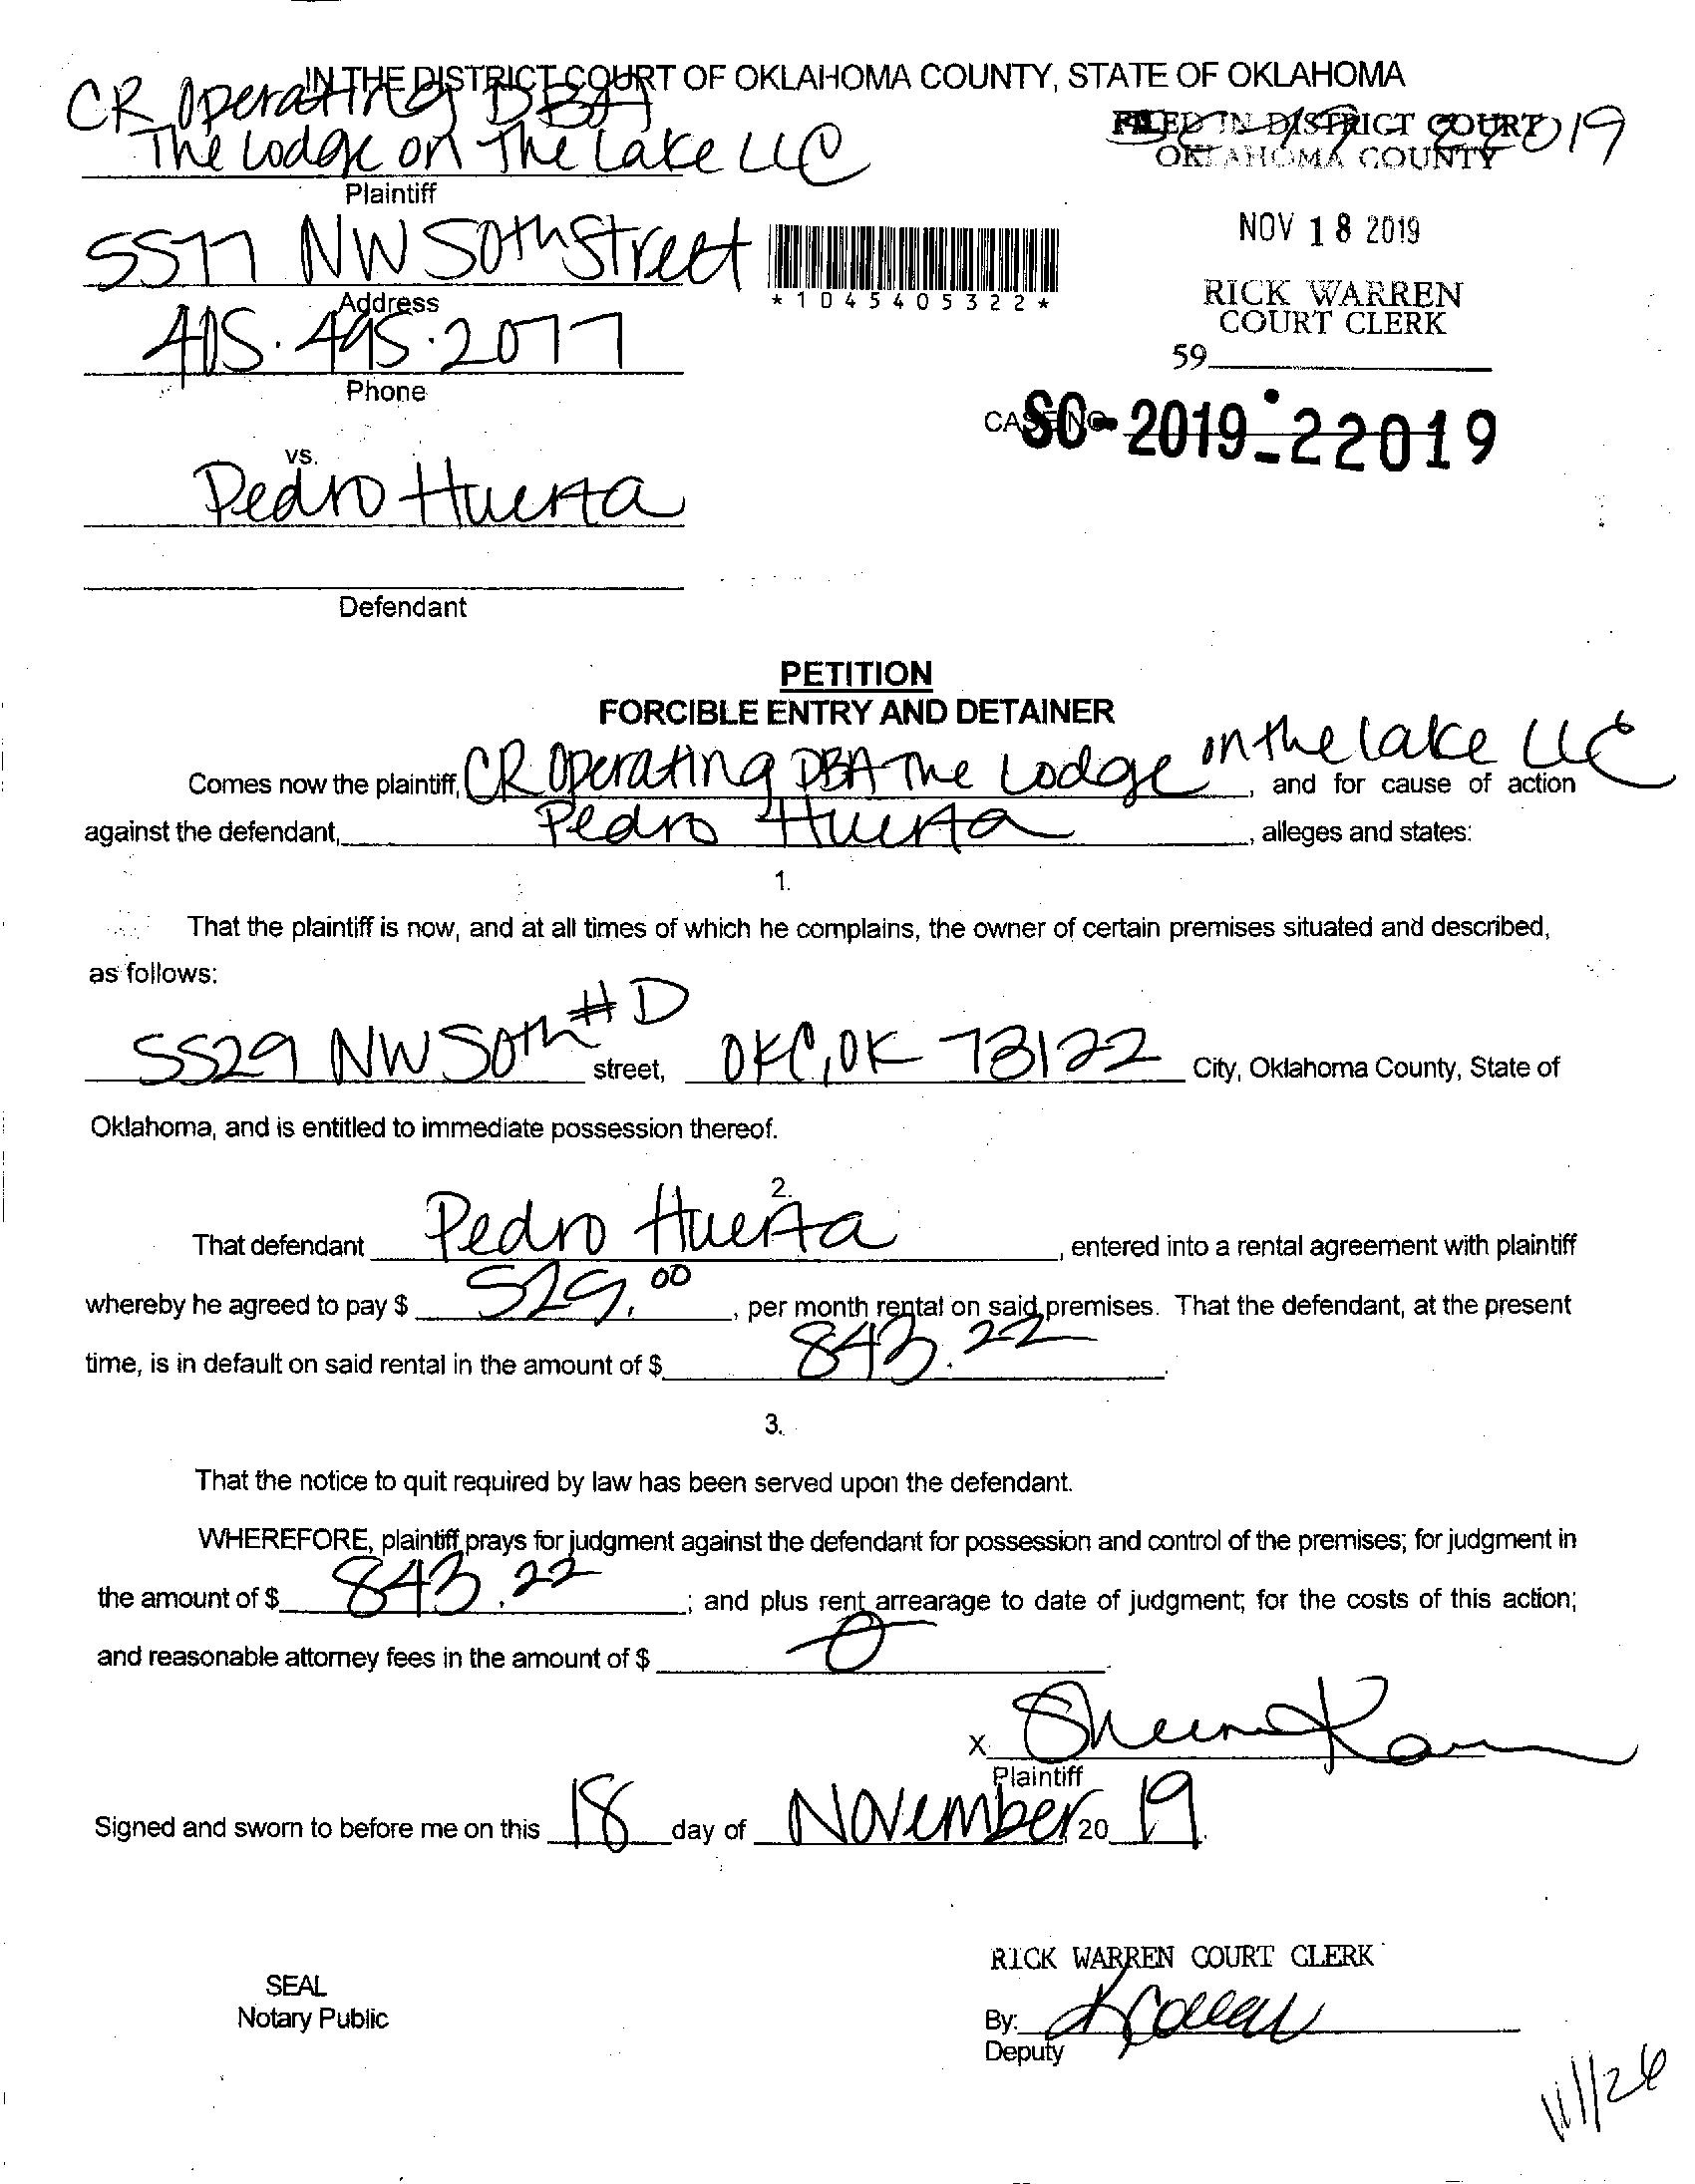 IN THE DISTRICT COURT OF OKLAHOMA COUNTY, STATE OF OKLAHOMA
CR Operating DBA
The Lodge on The Lake LLC
Plaintiff
FILED IN DISTRICT COURT
OKLAHOMA COUNTY
5577 NW 50th Street
Address
*1045405322*
NOV 18 2019
RICK WARREN
COURT CLERK
405.495.2077
Phone
59
CASE NO.
SC-2019-22019
vs.
Pedro Huerta
Defendant
PETITION
FORCIBLE ENTRY AND DETAINER
Comes now the plaintiff, CR Operating DBA The Lodge on the lake LLC, and for cause of action
against the defendant, Pedro Huerta, alleges and states:
1.
That the plaintiff is now, and at all times of which he complains, the owner of certain premises situated and described,
as follows:
5529 NW 50th #D street, OKC, OK 73122 City, Oklahoma County, State of
Oklahoma, and is entitled to immediate possession thereof.
2.
That defendant Pedro Huerta, entered into a rental agreement with plaintiff
whereby he agreed to pay $ 529.00, per month rental on said premises. That the defendant, at the present
time, is in default on said rental in the amount of $ 843.22.
3.
That the notice to quit required by law has been served upon the defendant.
WHEREFORE, plaintiff prays for judgment against the defendant for possession and control of the premises; for judgment in
the amount of $ 843.22; and plus rent arrearage to date of judgment; for the costs of this action;
and reasonable attorney fees in the amount of $ 0
X
Plaintiff
Signed and sworn to before me on this 18 day of November, 2019.
RICK WARREN COURT CLERK
SEAL
Notary Public
By:
Deputy
11/26